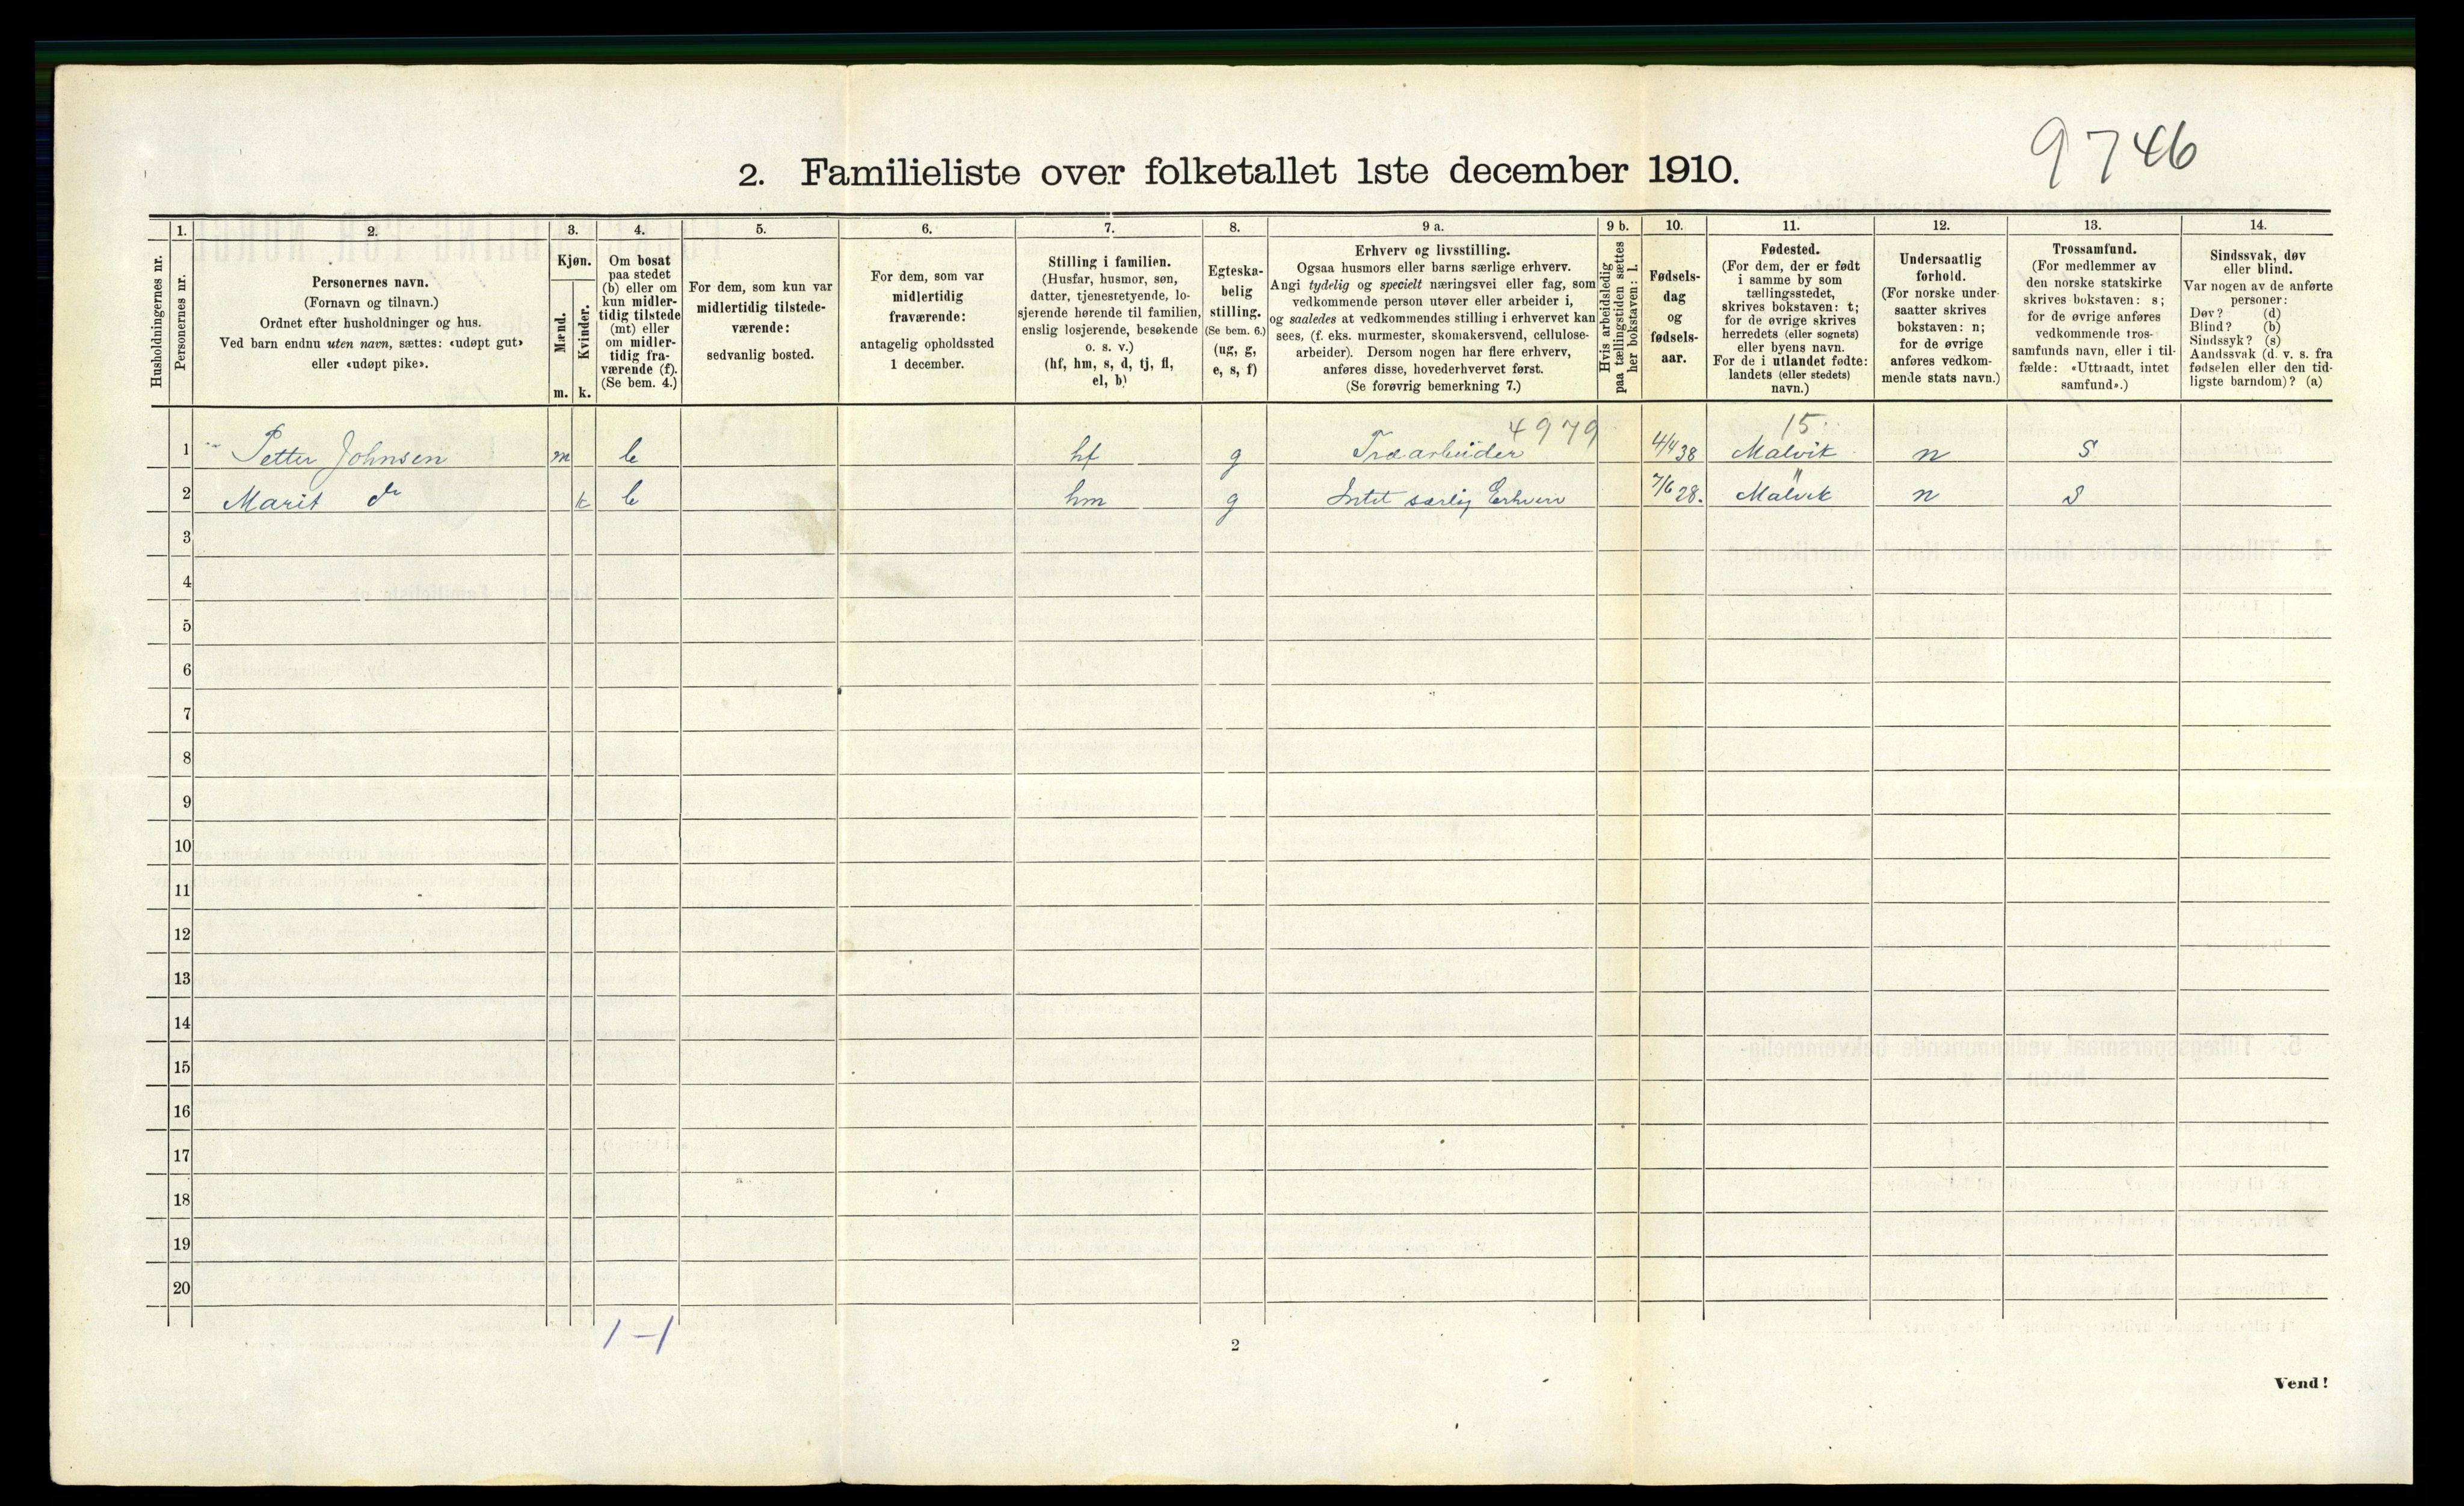 9746
2. Familieliste over folketallet 1ste december 1910.
Husholdningernes nr.
1.
Personernes nr.
2.
Personernes navn.
(Fornavn og tilnavn.)
Ordnet efter husholdninger og hus.
Ved barn endnu uten navn, sættes: «udøpt gut»
eller «udøpt pike».
3.
Kjøn.
Mænd.
Kvinder.
m. k.
4.
Om bosat
paa stedet
(b) eller om
kun midler-
tidig tilstede
(mt) eller
om midler-
tidig fra-
værende (f).
(Se bem. 4.)
5.
For dem, som kun var
midlertidig tilstede-
værende:
sedvanlig bosted.
6.
For dem, som var
midlertidig
fraværende:
antagelig opholdssted
1 december.
7.
Stilling i familien.
(Husfar, husmor, søn,
datter, tjenestetyende, lo-
sjerende hørende til familien,
enslig losjerende, besøkende
o. s. v.)
(hf, hm, s, d, tj, fl,
el, b)
8.
Egteska-
belig
stilling.
(Se bem. 6.)
(ug, g,
e, s, f)
9 a.
Erhverv og livsstilling.
Ogsaa husmors eller barns særlige erhverv.
Angi tydelig og specielt næringsvei eller fag, som
vedkommende person utøver eller arbeider i,
og saaledes at vedkommendes stilling i erhvervet kan
sees, (f. eks. murmester, skomakersvend, cellulose-
arbeider). Dersom nogen har flere erhverv,
anføres disse, hovederhvervet først.
(Se forøvrig bemerkning 7.)
9 b.
Hvis arbeidsledig
paa tællingstiden sættes
her bokstaven: l.
10.
Fødsels-
dag
og
fødsels-
aar.
11.
Fødested.
(For dem, der er født
i samme by som
tællingsstedet,
skrives bokstaven: t;
for de øvrige skrives
herredets (eller sognets)
eller byens navn.
For de i utlandet fødte:
landets (eller stedets)
navn.)
12.
Undersaatlig
forhold.
(For norske under-
saatter skrives
bokstaven: n;
for de øvrige
anføres vedkom-
mende stats navn.)
13.
Trossamfund.
(For medlemmer av
den norske statskirke
skrives bokstaven: s;
for de øvrige anføres
vedkommende tros-
samfunds navn, eller i til-
fælde: «Uttraadt, intet
samfund».)
14.
Sindssvak, døv
eller blind.
Var nogen av de anførte
personer:
Døv? (d)
Blind? (b)
Sindssyk? (s)
Aandssvak (d. v. s. fra
fødselen eller den tid-
ligste barndom)? (a)
4979 15.
1 Petter Johnsen m b hf g Træarbeider 4/4 38 Malvik n S
2 Marit do k b hm g Intet særlig Erhverv 7/6 28. Malvik " n S
3
4
5
6
7
8
9
10
11
12
13
14
15
16
17
18
19
20
1 – 1
2
Vend!